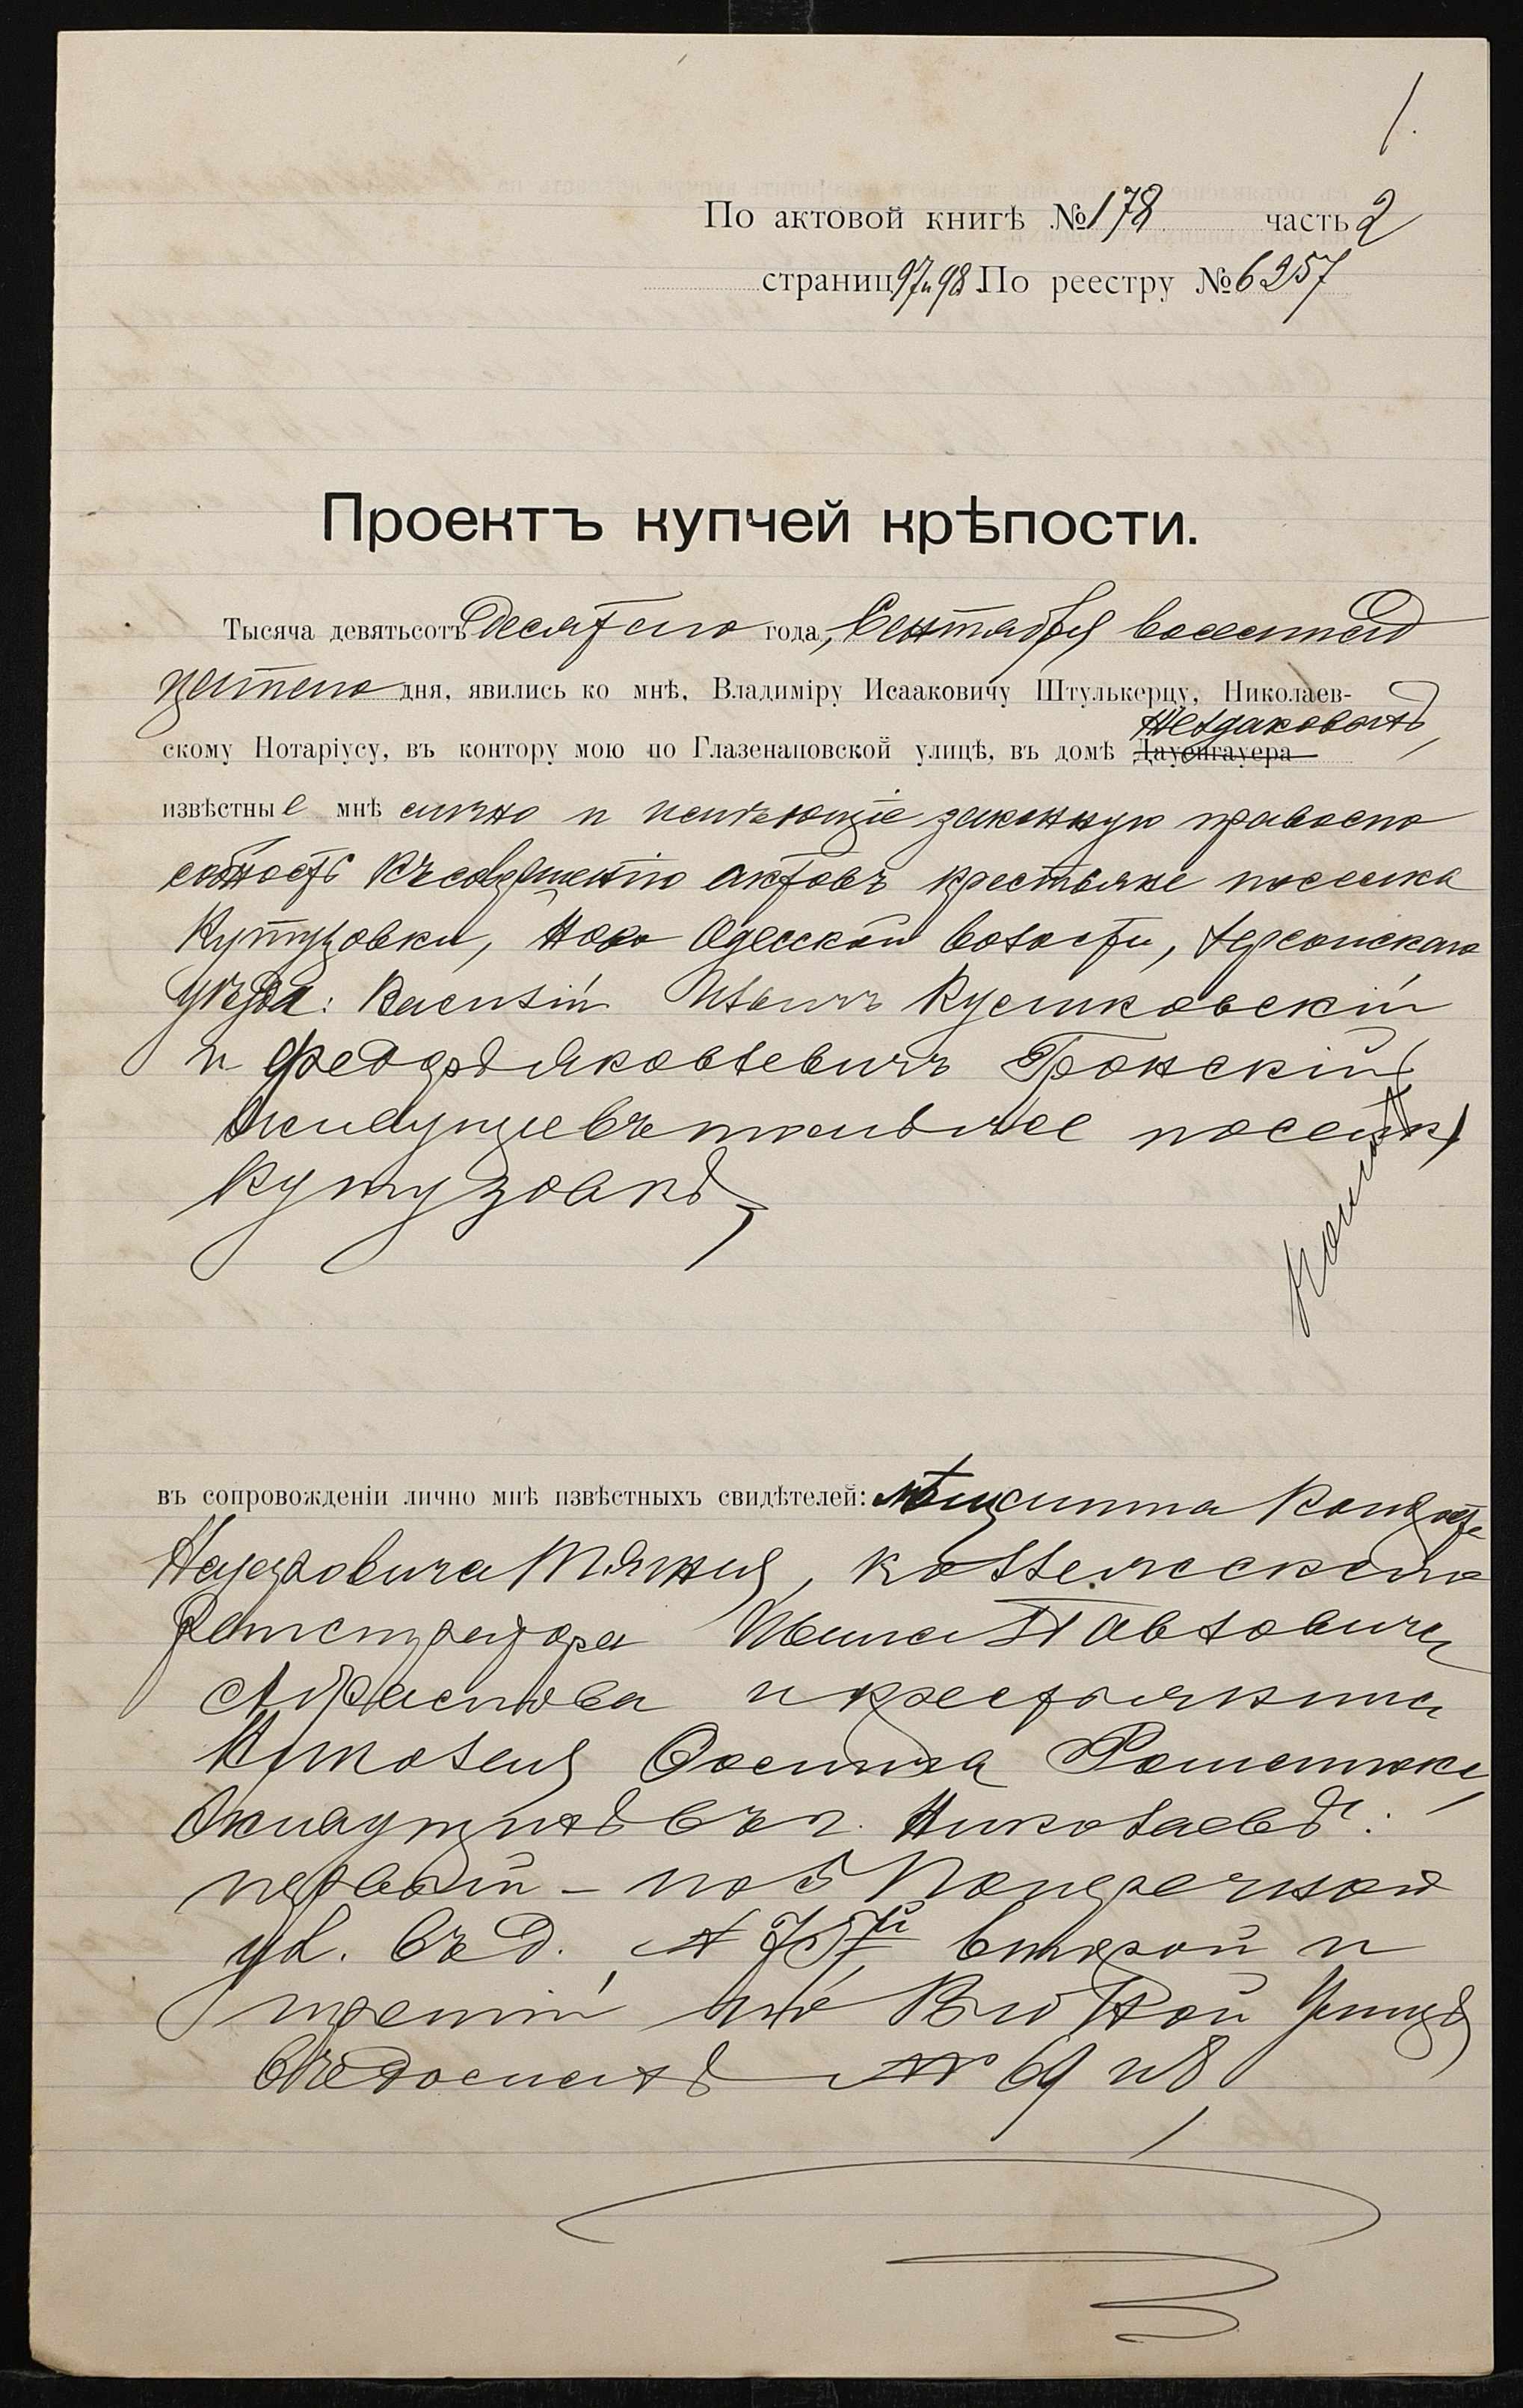 1.
По актовой книгѣ № 178 часть 2
страниц 97 и 98 По реестру № 6257
Проектъ купчей крѣпости.
Тысяча девятьсотъ десятаго года, Сентября восемнад
цатаго дня, явились ко мнѣ, Владиміру Исааковичу Штулькерцу, Николаев-
скому Нотаріусу, въ контору мою по Глазенаповской улицѣ, въ домѣ Дауенгауера
извѣстные мнѣ лично и имѣющіе законную правоспо
собность къ совершенію актовъ крестьяне поселка
Кутузовки, Ново Одесской волости, Херсонскаго
уѣзда: Василій Ивановъ
и Феодоръ Яковлевичъ Гронскій
живущіе въ томъ же поселкѣ
Кутузовкѣ,
въ сопровожденіи лично мнѣ извѣстныхъ свидѣтелей: мѣщанина
коллежскаго
Регистратора Ивана Павловича
и крестьянина
Осипа
живущихъ въ г. Николаевѣ:
первый - по 5 Поперечной
ул. въ д. № 75, второй и
третій по Улицѣ
въ домахъ №№ 69 и 8